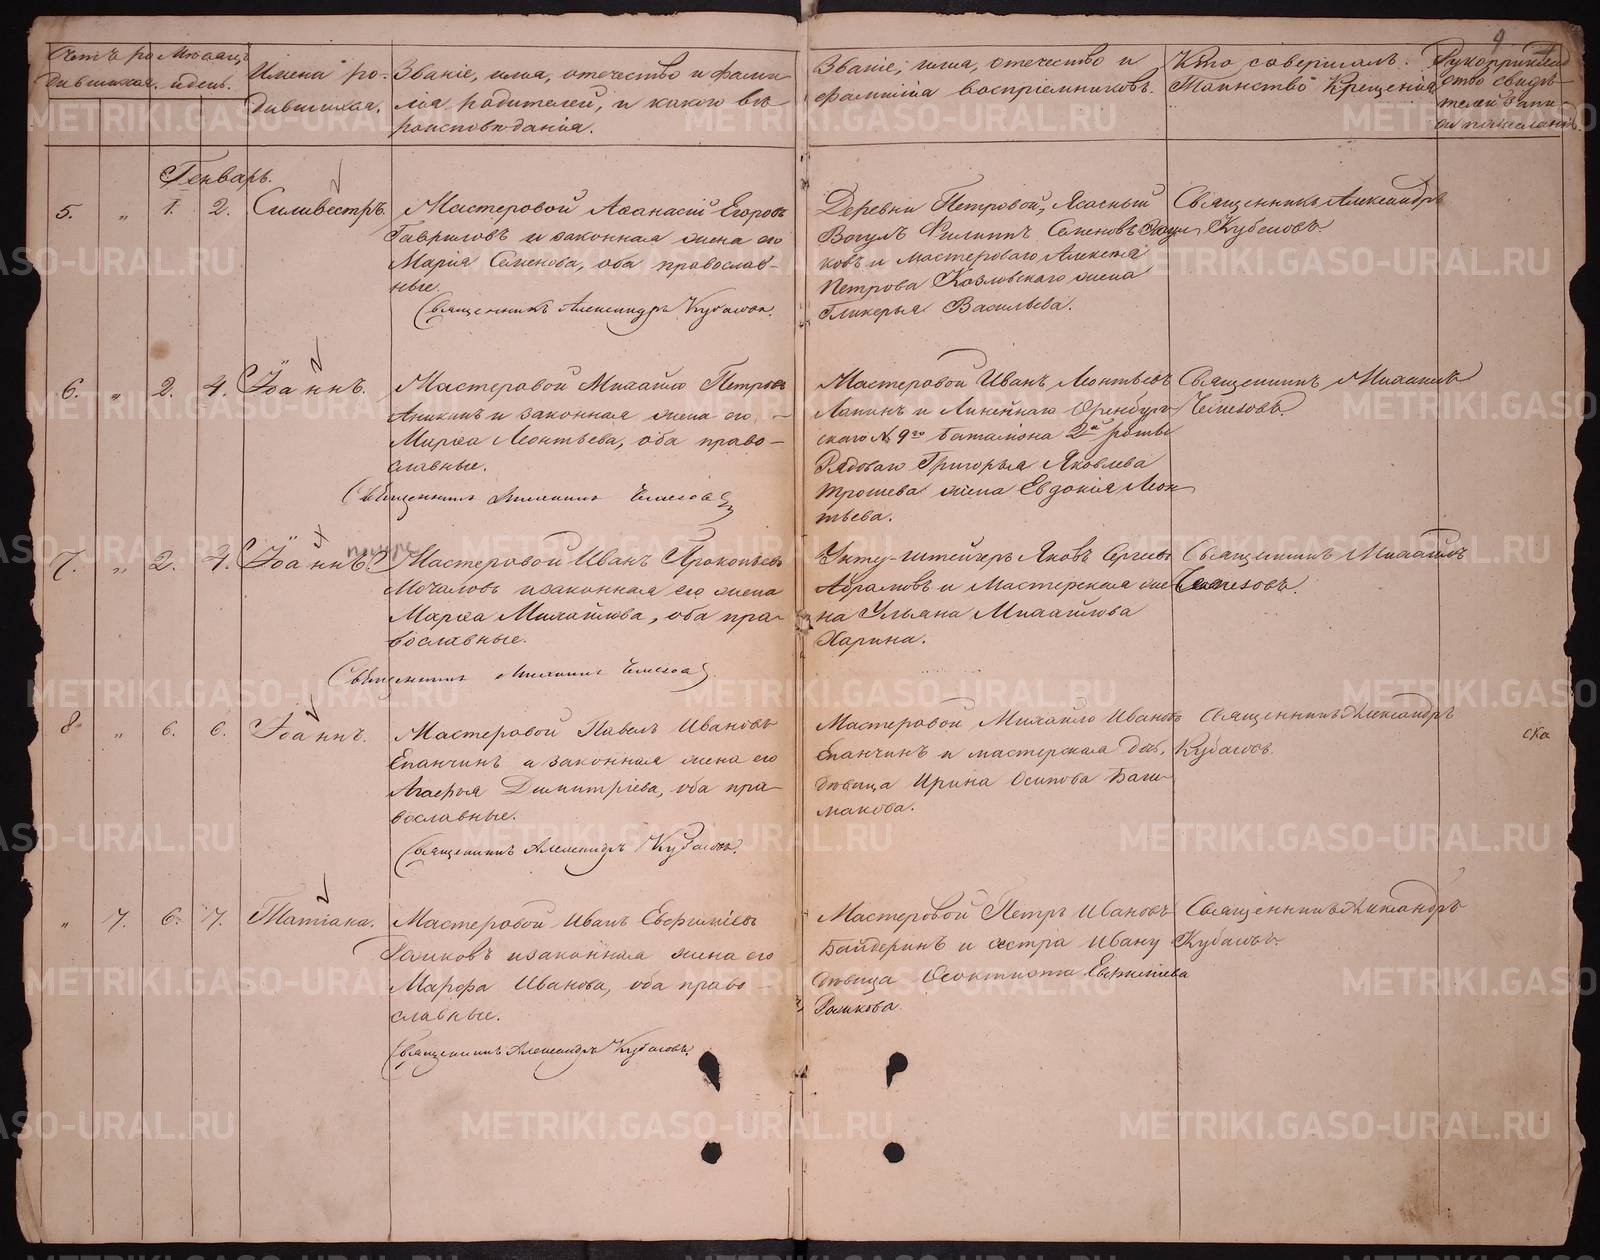 9
Счетъ ро Мѣсяцъ
дившихся. и день.
Имена ро-
дившихся.
Званіе, имя, отечество и фами-
лія родителей, и какого вѣ-
роисповѣданія.
Званіе, имя, отечество и
фамилія воспріемниковъ.
Кто совершалъ
Таинство Крещенія
Рукоприклад
ство свидѣ-
телей запи-
си по желанію
Генварь.
5. „ 1. 2. Силивестръ.
Мастеровой Аѳанасій Егоровъ
Гавриловъ и законная жена его
Марія Семенова, оба православ-
ные.
Священникъ Александръ Кубасовъ.
Деревни Петровой, Ясашный
Вогулъ Филиппъ Семеновъ
ковъ и мастероваго Алексѣя
Петрова Козловскаго жена
Гликерья Васильева.
Священникъ Александръ
Кубасовъ.
6. „ 2. 4. Іоаннъ.
Мастеровой Михайло Петровъ
Аникинъ и законная жена его, -
Марѳа Леонтьева, оба право-
славные.
Священникъ Михаилъ
Мастеровой Иванъ Леонтьевъ
Лапинъ и Линейнаго Оренбург-
скаго № 9го баталіона 2й роты
Рядоваго Григорья Яковлева
Трошева жена Евдокія Леон-
тьева.
Священникъ Михаилъ
7. „ 2. 4. Іоаннъ
Мастеровой Иванъ Прокопьевъ
Мочаловъ и законная его жена
Марѳа Михайлова, оба пра-
вославные.
Священникъ Михаилъ
Унту-штейгеръ Яковъ Сергеевъ
Абрамовъ и Мастерская же
на Ульяна Михайлова
Харина.
Священникъ Михаилъ
8 „ 6. 6. Іоаннъ.
Мастеровой Павелъ Ивановъ
Епанчинъ и законная жена его
Агафья Димитріева, оба пра-
вославные.
Священникъ Александръ Кубасовъ.
Мастеровой Михайло Ивановъ
Епанчинъ и мастерская дочь,
дѣвица Ирина Осипова Баш-
макова.
Священникъ Александръ
Кубасовъ.
ска
„ 7. 6. 7. Татіана.
Мастеровой Иванъ Евфиміевъ
Рашковъ и законная жена его
Марѳа Иванова, оба право-
славные.
Священникъ Александръ Кубасовъ.
Мастеровой Петръ Ивановъ
Байдеринъ и сестра Ивану
дѣвица Ѳеоктиста Евфиміева
Рашкова.
Священникъ Александръ
Кубасовъ.
METRIKI.GASO-URAL.RU